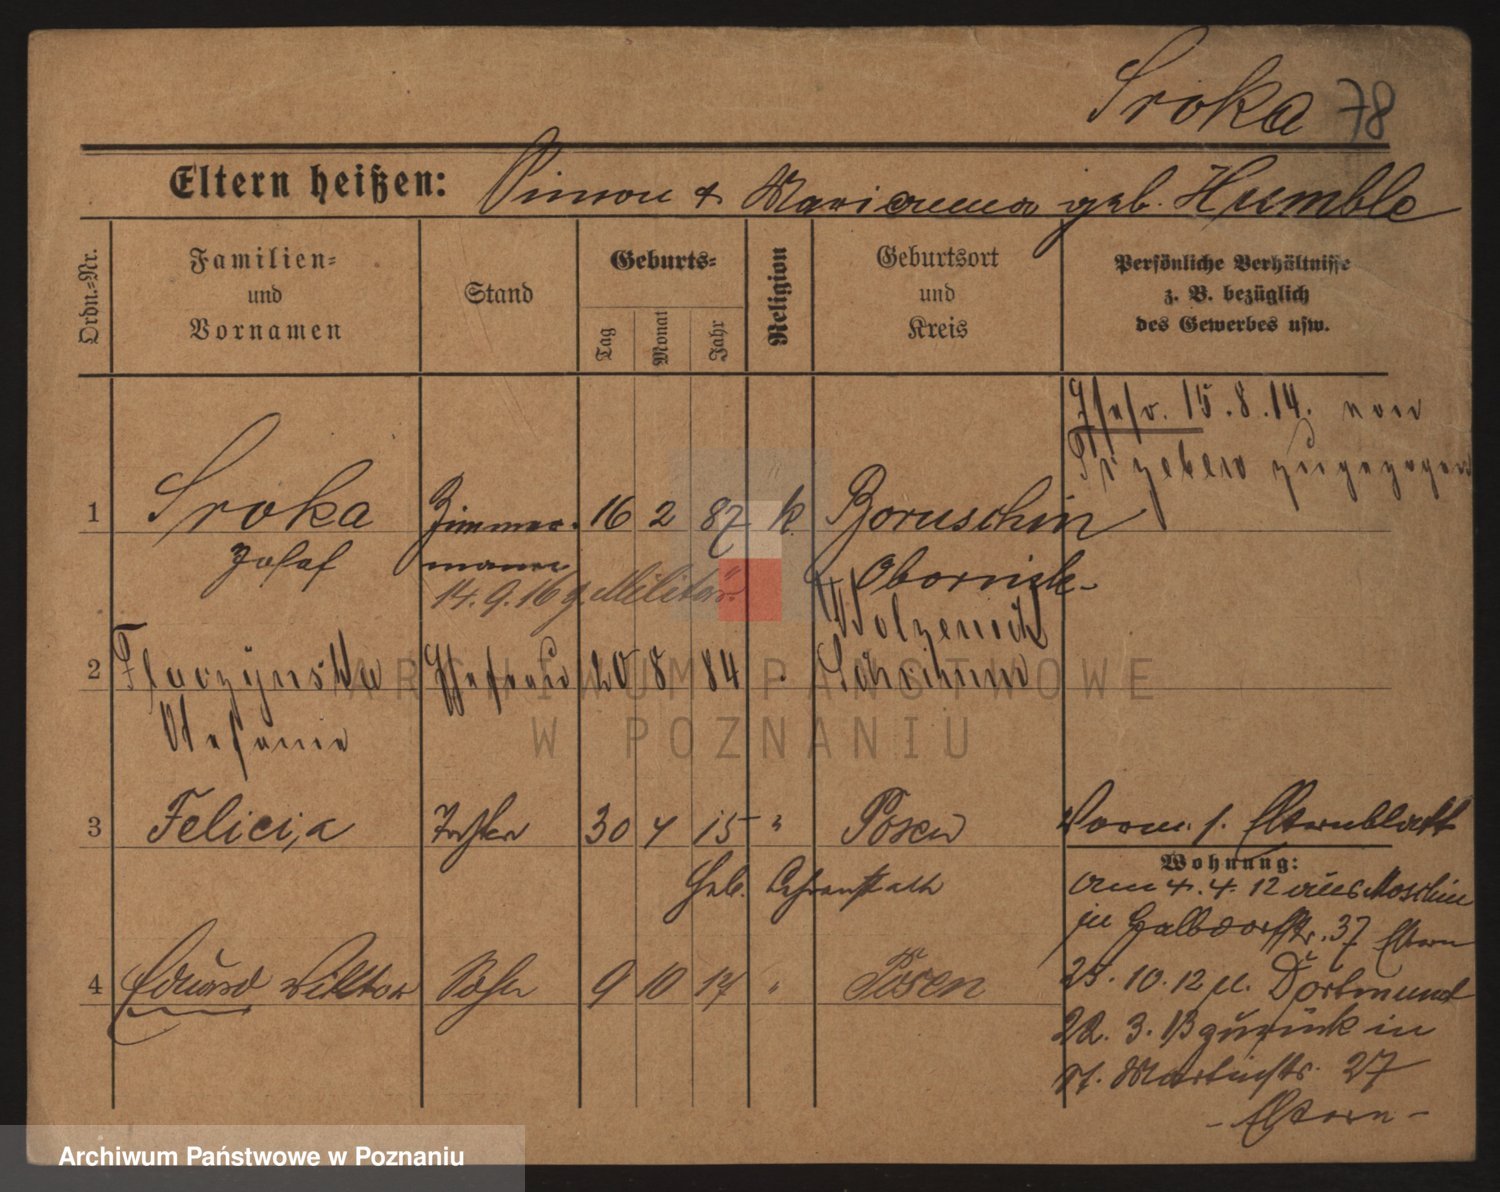 Sroka 78
Eltern heißen: Simon & Marianna geb. Humble
Ordn.-Nr.
Familien-
und
Vornamen
Stand
Geburts-
Tag
Monat
Jahr
Religion
Geburtsort
und
Kreis
Persönliche Verhältnisse
z. B. bezüglich
des Gewerbes usw.
15.8.14. von
zugezogen
1 Sroka Zimmer- 16 2 87 k. Boruschin
Josef mann Obornik
14.9.16 z. Militär
2 Ehefrau 20 8 84 "
Stefanie
3 Felicia Tochter 30 4 15 " Posen Vorm. s. Elternblatt
Geb.
Wohnung:
am 4.4.12 aus Moschin
in 37 Eltern
4 Eduard Viktor Sohn 9 10 17 " Posen
25.10.12 n. Dortmund
22.3.13 zurück in
St. Martinstr. 27
- Eltern -
ARCHIWUM PAŃSTWOWE
W POZNANIU
Archiwum Państwowe w Poznaniu